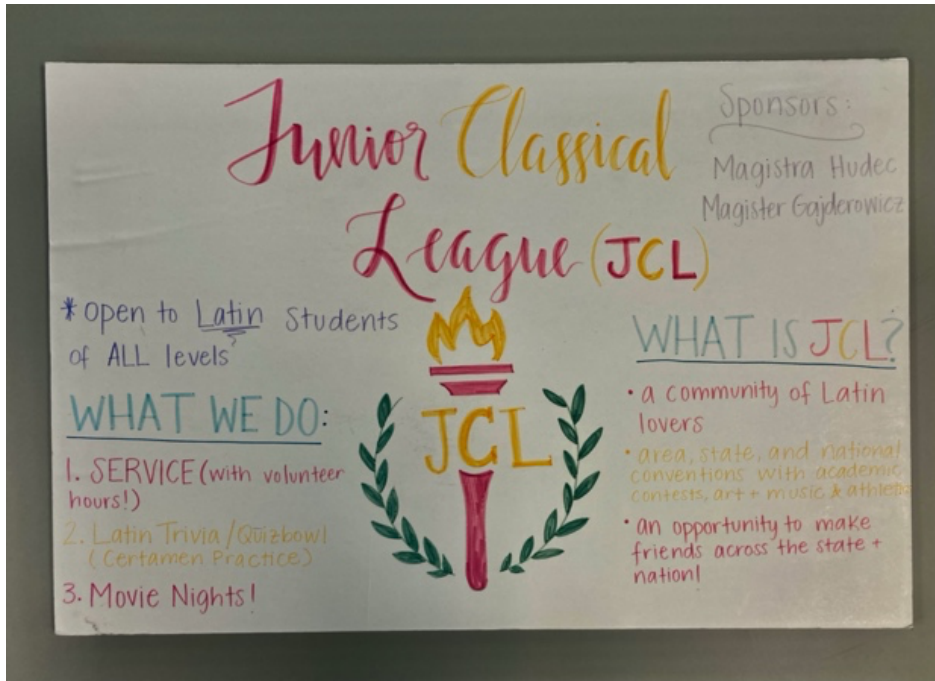 Junior Classical
League (JCL)
Sponsors:
Magistra Hudec
Magister Gajderowicz
*open to Latin students
of ALL levels
WHAT WE DO:
1. SERVICE (with volunteer
hours!)
2. Latin Trivia/Quizbowl
(Certamen Practice)
3. Movie Nights!
JCL
WHAT IS JCL?
• a community of Latin
lovers
• area, state, and national
conventions with academic
contests, art + music & athletic
• an opportunity to make
friends across the state +
nation!